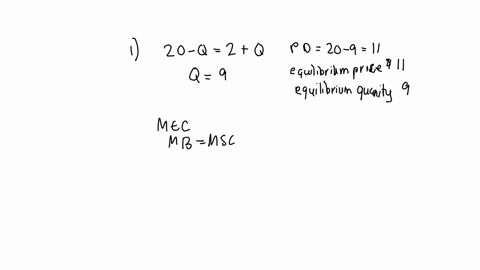 1) 20-Q = 2 + Q PD = 20-9 = 11
Q = 9 equilibrium price $11
equilibrium quanity 9
MEC
MB = MSC